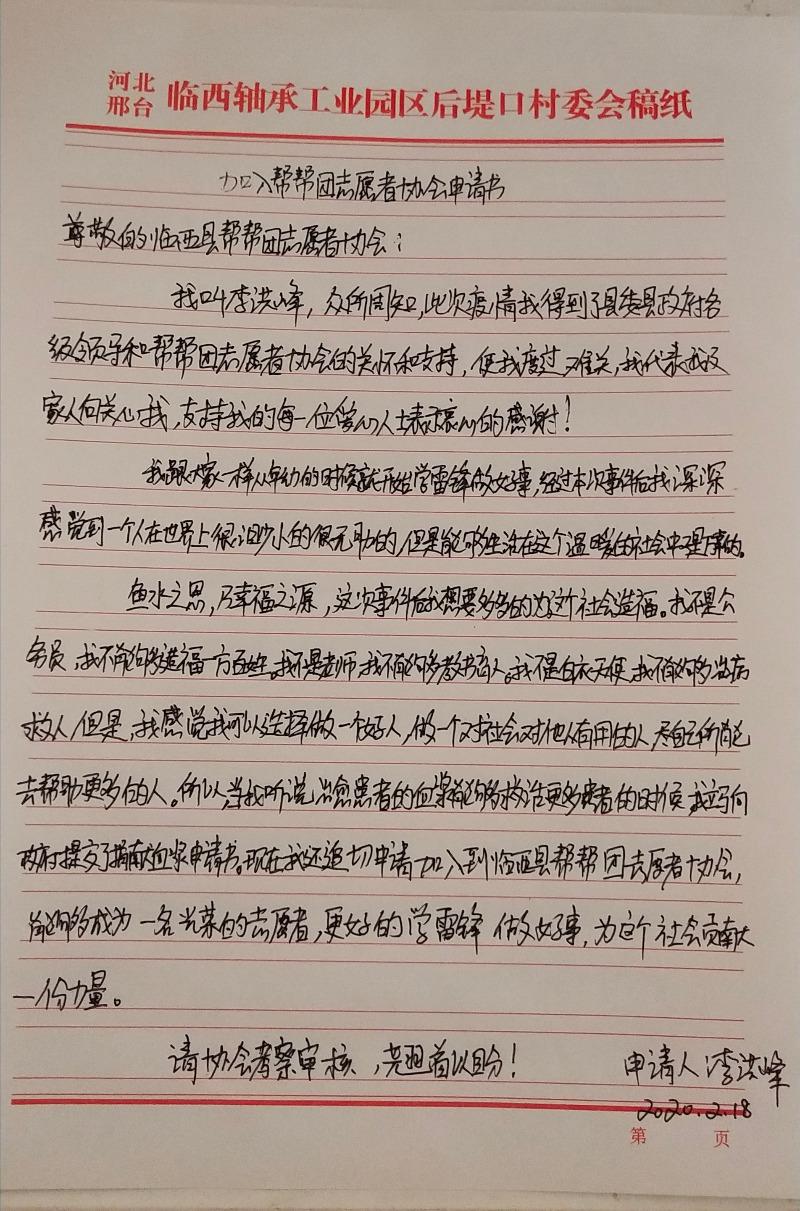 河北
邢台 临西轴承工业园区后堤口村委会稿纸
加入帮帮团志愿者协会申请书
尊敬的临西县帮帮团志愿者协会:
我叫李洪峰,众所周知,此次疫情我得到了县委县政府各
级领导和帮帮团志愿者协会的关怀和支持,使我度过难关,我代表我及
家人向关心我,支持我的每一位爱心人士表示衷心的感谢!
我跟大家一样从年幼的时候就开始学雷锋做好事,经过本次事件后我深深
感觉到一个人在世界上很渺小的很无助的,但是能够生活在这个温暖的社会中是万幸的。
鱼水之恩,乃幸福之源,这次事件后我想要多多的为这个社会造福。我不是公
务员,我不能够造福一方百姓。我不是老师,我不能够教书育人。我不是白衣天使,我不能够治病
救人,但是,我感觉我可以选择做一个好人,做一个对社会对他人有用的人,尽自己所能
去帮助更多的人。所以,当我听说治愈患者的血浆能够救治更多患者的时候,我立马向
政府提交了捐献血浆申请书。现在我还迫切申请加入到临西县帮帮团志愿者协会,
能够成为一名光荣的志愿者,更好的学雷锋做好事,为这个社会贡献
一份力量。
请协会考察审核,翘首以盼!
申请人:李洪峰
2020.2.18
第 页